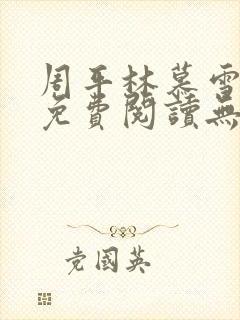 周平林慕雪
免費閱讀無
党國英